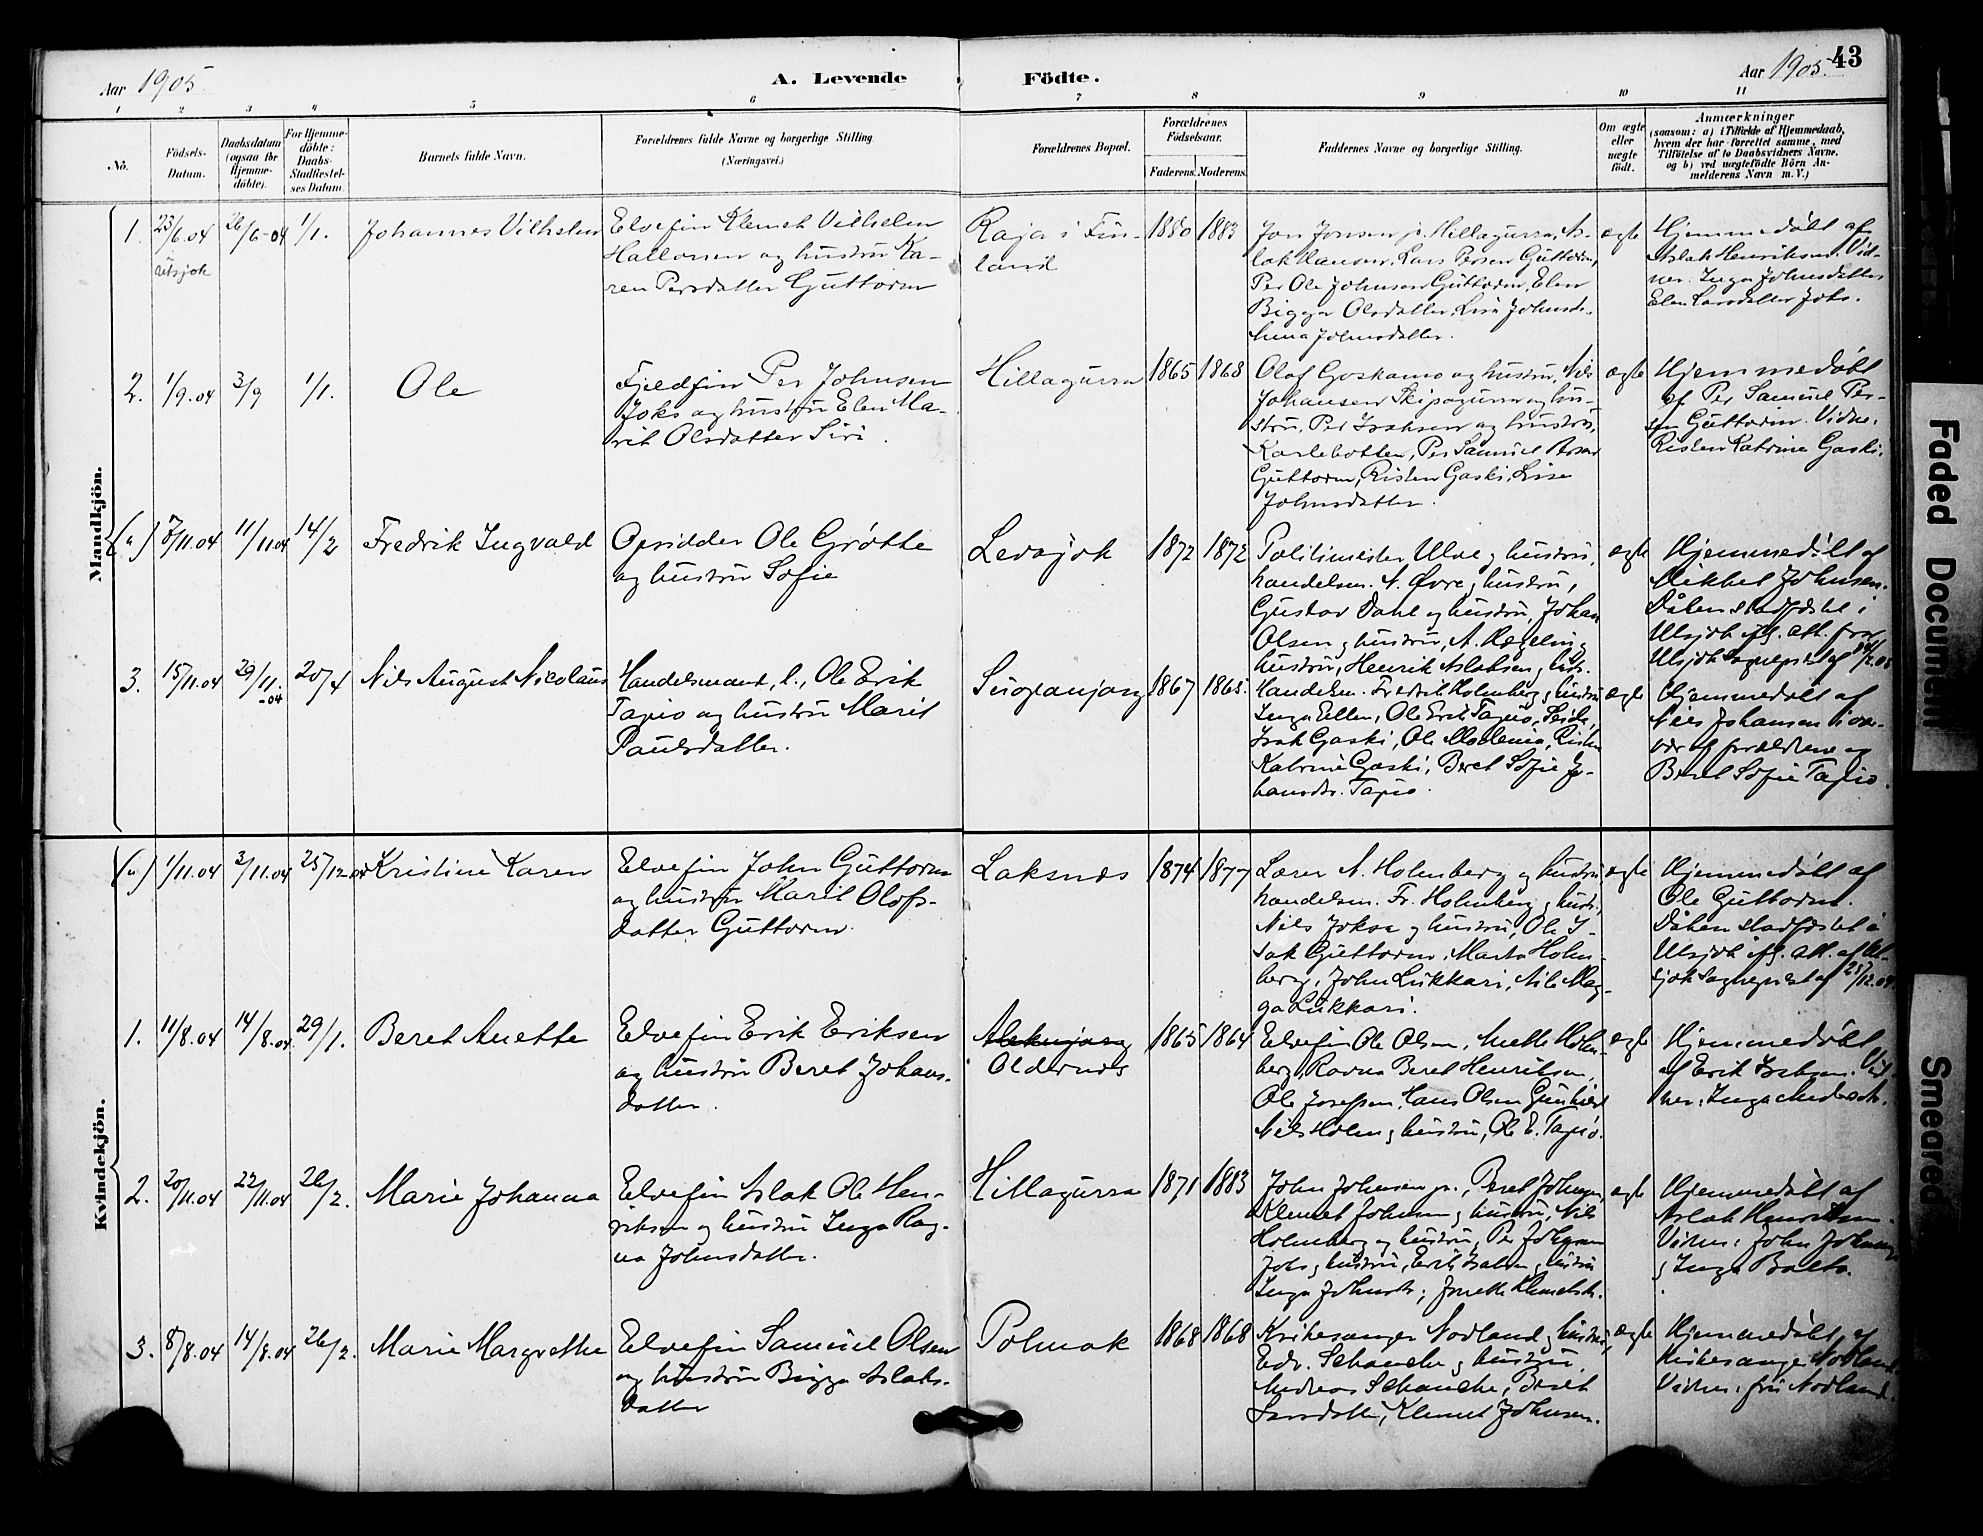 Aar 1905. A. Levende Födte. Aar 1905. 43
1 2 3 4 5 6 7 8 9 10 11
No. Födsels-Datum. Daabsdatum (ogsaa for Hjemme-döbte). For Hjemme-döbte: Daabs-Stadfæstel-ses Datum. Barnets fulde Navn. Forældrenes fulde Navne og borgerlige Stilling. (Næringsvei.) Forældrenes Bopæl. Forældrenes Födselsaar. Faderens. Moderens. Faddernes Navne og borgerlige Stilling. Om ægte eller uægte födt. Anmærkninger (saasom: a) i Tilfælde af Hjemmedaab, hvem der har forrettet samme, med Tilföielse af to Daabsvidners Navne, og b) ved uægtefödte Börn An-melderens Navn m. V.)
Mandkjön.
1. 23/6.04 26/6-04 1/1. Johannes Vilhelm
Utsjok
Elvefin Klemet Vilhelm
Hallonen og hustru Ka-
ren Persdatter Guttorm
Raja i Fin-
land
1880 1883
Jon Jonsen jr. Hillagurra, As-
lak Hansen, Lars Persen Guttorm,
Per Ole Johnsen Guttorm, Elen
Bigga Olsdatter, Lisa Johnsdr.
Anna Johnsdatter.
ægte
Hjemmedøbt af
Aslak Henriksen. Vid-
ner. Inga Johnsdatter
Elen Larsdatter Joks.
2. 1/9.04 3/9 1/1. Ole
Fjeldfin Per Johnsen
Joks og hustru Elen Ma-
rit Olsdatter Siri.
Hillagurra
1865 1868
Olaf Goskamo og hustru, Nils
Johansen Skipagurra og hu-
stru, Per Isaksen og hustru,
Karlebotten, Per Samuel Persen
Guttorm, Risten Gaski, Lise
Johnsdatter.
ægte
Hjemmedøbt
af Per Samuel Per-
sen Guttorm. Vidne:
Risten Katrine Gaski.
(u) 7/11.04 11/11.04 14/2 Fredrik Ingvald
Opsidder Ole Grøtte
og hustru Sofie
Levajok
1872 1872
Politimester Ulve og hustru,
handelsm. N. Øvre og hustru,
Gustav Dahl og hustru, Johan
Olsen og hustru, A. Hegeling
hustru, Henrik Aslaksen, hust.
ægte
Hjemmedøbt af
Mikkel Johnsen.
Dåben stadfæstet i
Utsjok ifg. att. fra
Utsjok sogneprest af 14/2.05
3. 15/11.04 29/11-04 20/4 Nils August Nicolaus
Handelsmand, l., Ole Erik
Tapio og hustru Marit
Paulsdatter.
Suopanjarg
1867 1865.
Handelsm. Fredrik Holmberg og hustru
Inga Ellen, Ole Erik Tapio, Seida,
Isak Gaski, Ole Mollenia, Risten
Katrine Gaski, Beret Sofie Jo-
hansdr. Tapio.
ægte
Hjemmedøbt af
Nils Johansen i nær-
vær af forældrene og
Beret Sofie Tapio.
Kvindekjön.
(u) 1/11.04 3/11.04 25/12.04 Kristine Karen
Elvefin John Guttorm
og hustru Marit Olofs-
datter Guttorm.
Laksnes
1874 1877
Lærer A. Holmberg og hustru
handelsm. Fr. Holmberg og hust.,
Nils Joksa og hustru, Ole I-
sak Guttorm, Marta Holm-
berg, John Lukkari, Nils Mag-
ga Lukkari.
ægte
Hjemmedøbt af
Ole Guttorm.
Dåben stadfæstet i
Utsjok ifg. att. af Ut-
sjok sogneprest af 25/12.04
1. 11/8.04 14/8.04 29/1. Beret Anette
Elvefin Erik Eriksen
og hustru Beret Johans-
datter.
Aleknjarg
Oldernes
1865 1864
Elvefin Ole Olsen, Anette Holm-
berg, Ravna Beret Henriksen,
Ole Josefsen, Hans Olsen Gunhild
Nils Holm og hustru, Ole E. Tapio.
ægte
Hjemmedøbt
af Erik Isaksen. Vid-
ner: Inga Andersdr.
2. 20/11.04 22/11.04 26/2. Marie Johanna
Elvefin Aslak Ole Hen-
riksen og hustru Inga Rag-
na Johnsdatter.
Hillagurra
1871 1883
John Johnsen jr., Beret Johnsen,
Klemet Johnsen og hustru, Nils
Holmberg og hustru, Per Johnsen
Joks og hustru, Erik Isaksen og hustru
Inga Johnsdr., Anette Klemetsdr.
ægte
Hjemmedøbt af
Aslak Henriksen.
Vidner: John Johnsen
og Inga Balto.
3. 8/8.04 14/8.04 26/2. Marie Margrethe
Elvefin Samuel Olsen
og hustru Bigga Aslaks-
datter
Polmak
1868 1868
Kirkesanger Nordland og hustru,
Edv. Schanche og hustru,
Andreas Schanche, Beret
Larsdatter, Klemet Johnsen.
ægte
Hjemmedøbt af
Kirkesanger Nordland.
Vidner: fru Nordland.
Faded Document
Smeared